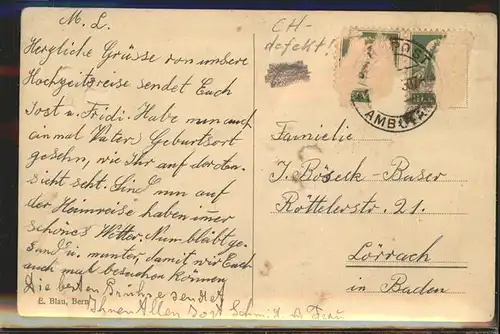 M. L.
Herzliche Grüsse von unsere
Hochzeitsreise sendet Euch
Jost u. Fridi. Habe nun auch
einmal Vaters Geburtsort
gesehn, wie Ihr auf der An-
sicht seht. Sind nun auf
der Heimreise haben imer
schönes Wetter. Nun bläbt ge-
sund u. munter, damit wir Euch
auch mal besuchen können
Die besten Grüsse sendet
Ihnen Allen Jost Schmid u. Frau
E. Blau, Bern
CH-
defekt!
POST
AMBULANT
Familie
J. Böseck-Baser
Röttelerstr. 21.
Lörrach
in Baden